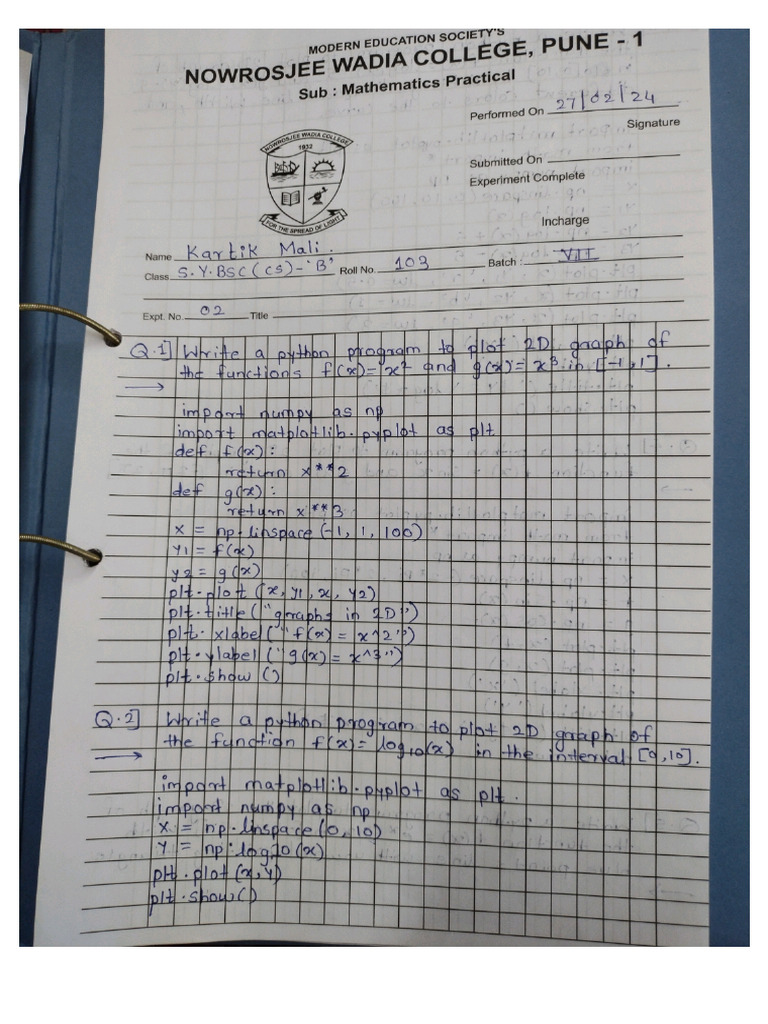 MODERN EDUCATION SOCIETY'S
NOWROSJEE WADIA COLLEGE, PUNE - 1
Sub : Mathematics Practical
Performed On 27/02/24
Signature
NOWROSJEE WADIA COLLEGE
1932
FOR THE SPREAD OF LIGHT
Submitted On
Experiment Complete
Incharge
Name Kartik Mali.
Class S.Y.BSC (CS)-'B' Roll No. 103 Batch : VII
Expt. No. 02 Title
Q.1] Write a python program to plot 2D graph of
→ the functions f(x)=x² and g(x)=x³ in [-1,1].
import numpy as np
import matplotlib.pyplot as plt
def f(x):
return x**2
def g(x):
return x**3
x = np.linspace(-1, 1, 100)
y1 = f(x)
y2 = g(x)
plt.plot (x, y1, x, y2)
plt.title("graphs in 2D")
plt.xlabel("f(x) = x^2")
plt.ylabel("g(x) = x^3")
plt.show ()
Q.2] Write a python program to plot 2D graph of
→ the function f(x)= log₁₀(x) in the interval [0,10].
import matplotlib.pyplot as plt.
import numpy as np
x = np.linspace(0, 10)
y = np.log10(x)
plt.plot(x,y)
plt.show()